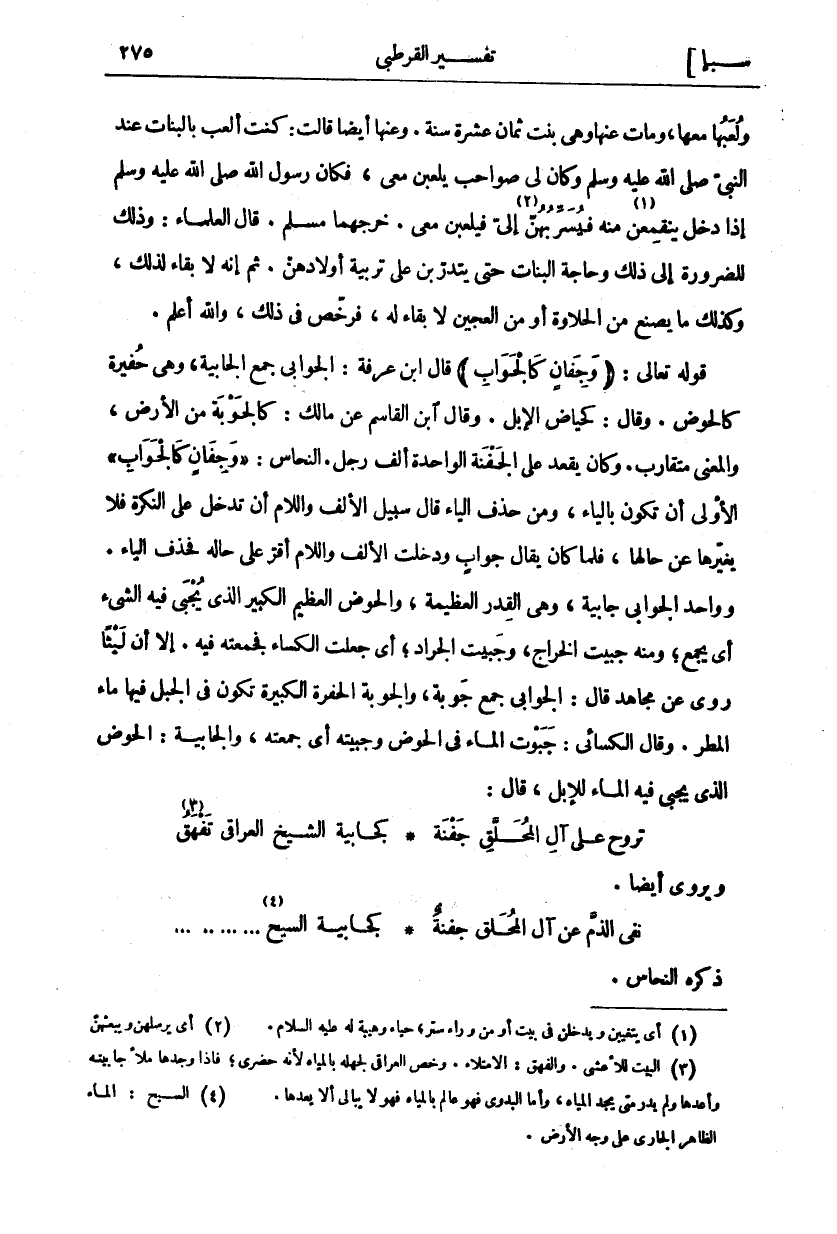 سبإ] تفسير القرطبى ٢٧٥
ولُعَبُها معها، ومات عنها وهى بنت ثمان عشرة سنة . وعنها أيضا قالت: كنت ألعب بالبنات عند
النبىّ صلى الله عليه وسلم وكان لى صواحب يلعبن معى ، فكان رسول الله صلى الله عليه وسلم
إذا دخل ينقمِعن (١) منه فيُسَرِّبُهُنّ (٢) إلىّ فيلعبن معى . خرجهما مسلم . قال العلماء : وذلك
للضرورة إلى ذلك وحاجة البنات حتى يتدرّبن على تربية أولادهنّ . ثم إنه لا بقاء لذلك ،
وكذلك ما يصنع من الحلاوة أو من العجين لا بقاء له ، فرخّص فى ذلك ، والله أعلم .
قوله تعالى : ﴿ وَجِفَانٍ كَالْجَوَابِ ﴾ قال ابن عرفة : الجوابى جمع الجابية، وهى حُفيرة
كالحوض . وقال : كحياض الإبل . وقال آبن القاسم عن مالك : كالجَوْبَة من الأرض ،
والمعنى متقارب. وكان يقعد على الجَفْنَة الواحدة ألف رجل. النحاس : «وَجِفَانٍ كَالْجَوَابِ»
الأوْلى أن تكون بالياء ، ومن حذف الياء قال سبيل الألف واللام أن تدخل على النكرة فلا
يغيّرها عن حالها ، فلما كان يقال جوابٍ ودخلت الألف واللام أقرّ على حاله فحذف الياء .
وواحد الجوابى جابية ، وهى القِدر العظيمة ، والحوض العظيم الكبير الذى يُجْبَى فيه الشىء
أى يجمع؛ ومنه جبيت الخراج، وجَبيت الجراد ؛ أى جعلت الكساء فجمعته فيه . إلا أن لَيْثًا
روى عن مجاهد قال : الجوابى جمع جَوبة، والجوبة الحفرة الكبيرة تكون فى الجبل فيها ماء
المطر . وقال الكسائى : جَبَوْت الماء فى الحوض وجبيته أى جمعته ، والجابية : الحوض
الذى يجبى فيه الماء للإبل ، قال :
تروح على آلِ المُحَلَّقِ جَفْنَة * كجابية الشيخ العراقى تَفْهَقُ (٣)
ويروى أيضا .
نفى الذمَّ عن آل المُحَلق جفنةٌ * كجابية السيح (٤) ... ... .. ...
ذكره النحاس .
(١) أى يتغيبن ويدخلن فى بيت أو من وراء ستر؛ حياء وهيبة له عليه السلام. (٢) أى يرسلهن ويبعثهنّ
(٣) البيت للأعشى . والفهق : الامتلاء . وخص العراقى لجهله بالمياه لأنه حضرى ؛ فاذا وجدها ملأ جابيته
وأعدها ولم يدر متى يجد المياه ، وأما البدوى فهو عالم بالمياه فهو لا يبالى ألا يعدها . (٤) السيح : الماء
الظاهر الجارى على وجه الأرض .